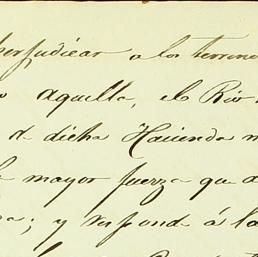 perjudicar a los terren
o aquella, el Rio
de dicha Hacienda m
mayor fuerza que a
; y responde á la